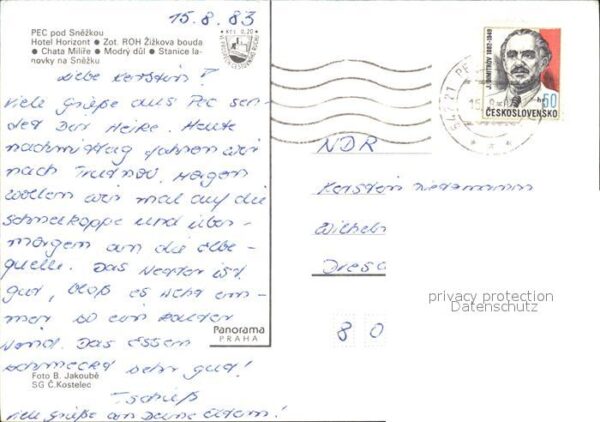 15.8.83
PEC pod Sněžkou
Hotel Horizont ● Zot. ROH Žižkova bouda
● Chata Milíře ● Modrý důl ● Stanice la-
novky na Sněžku
Kčs 0,20
Liebe Kerstin!
Viele Grüße aus Pec sen-
det Dir Heike. Heute
nachmittag fahren wir
nach Trutnov. Morgen
wollen wir mal auf die
Schneekoppe und über-
morgen an die Elbe-
quelle. Das Wetter ist
gut, bloß es weht im-
mer so ein kalter
Wind. Das Essen
schmeckt sehr gut!
Tschüß
Viele Grüße an Deine Eltern!
Foto B. Jakoubě
SG Č. Kostelec
Panorama
PRAHA
J. DIMITROV 1882-1949
60
ČESKOSLOVENSKO
542 21 PE
15.8
NDR
Kerstin
Wilhelm
Dresd
privacy protection
Datenschutz
8 0